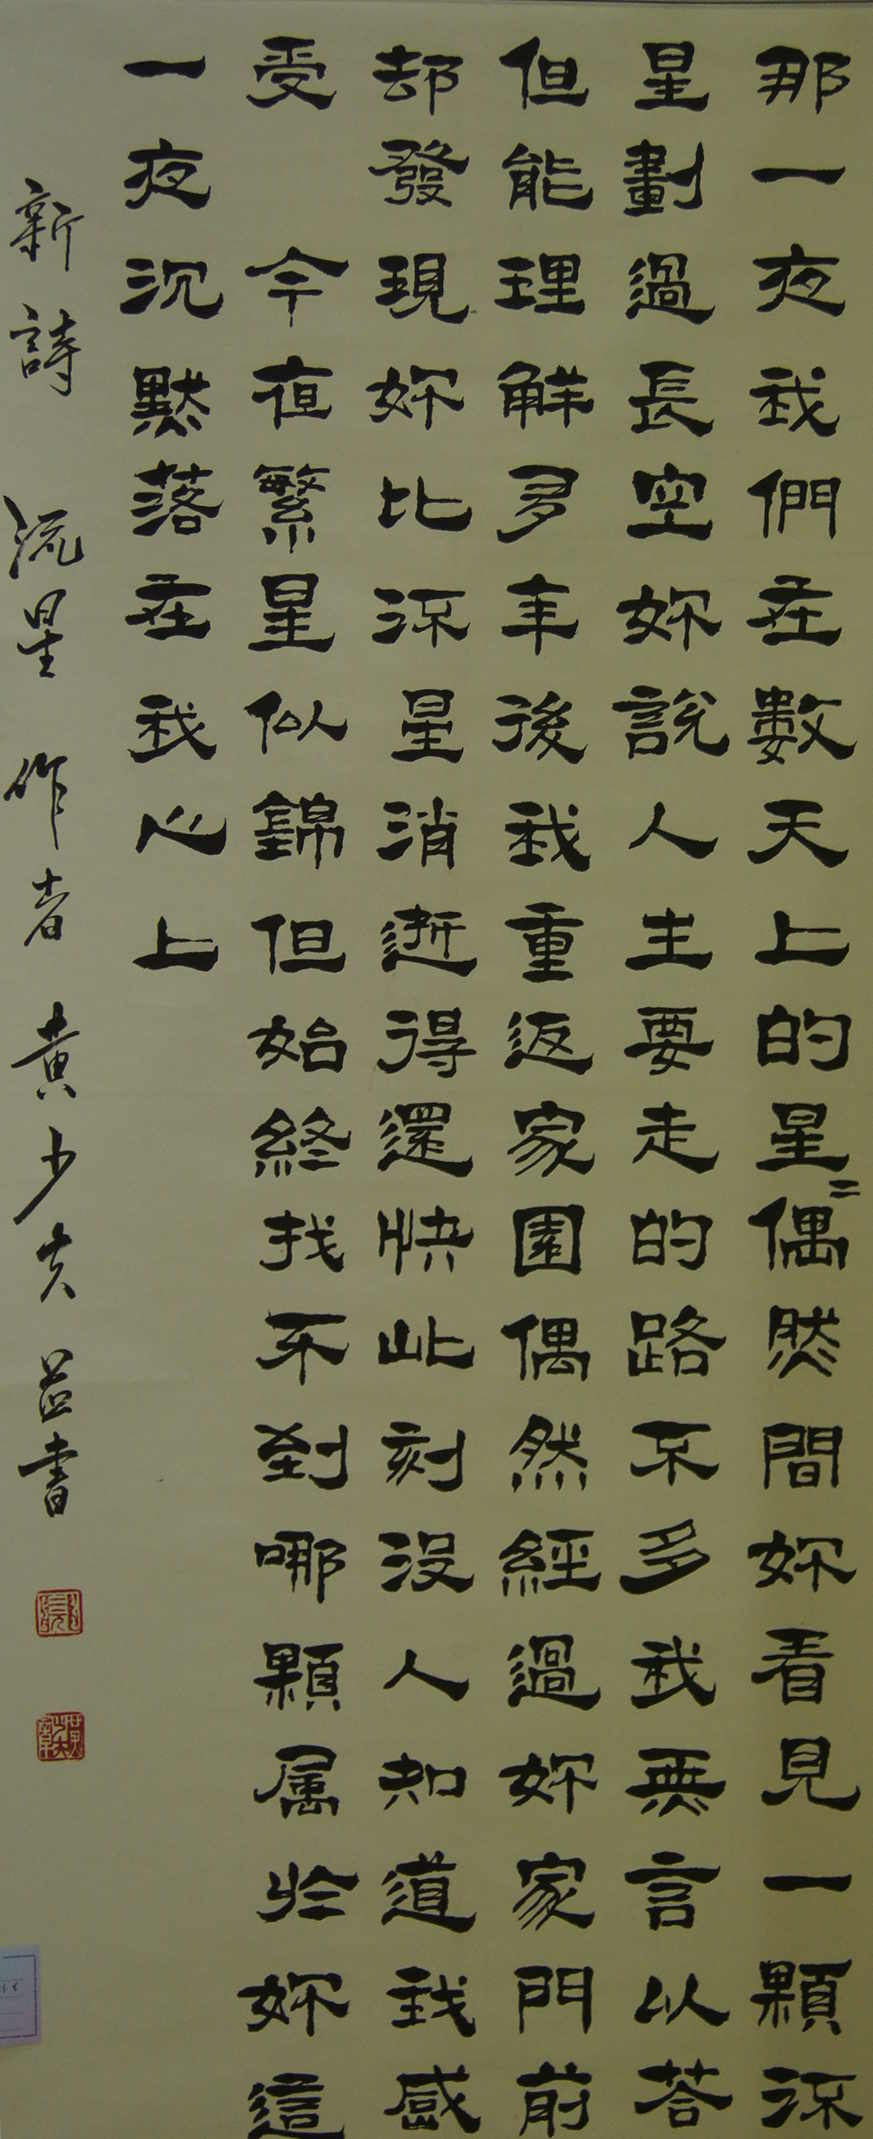 那一夜我們在數天上的星〻偶然間妳看見一顆流
星劃過長空妳說人生要走的路不多我無言以答
但能理解多年後我重返家園偶然經過妳家門前
却發現妳比流星消逝得還快此刻沒人知道我感
受 今夜繁星似錦但始終找不到哪顆属於妳這
一夜沉默落在我心上
新詩 流星 作者 黃少夫 並書